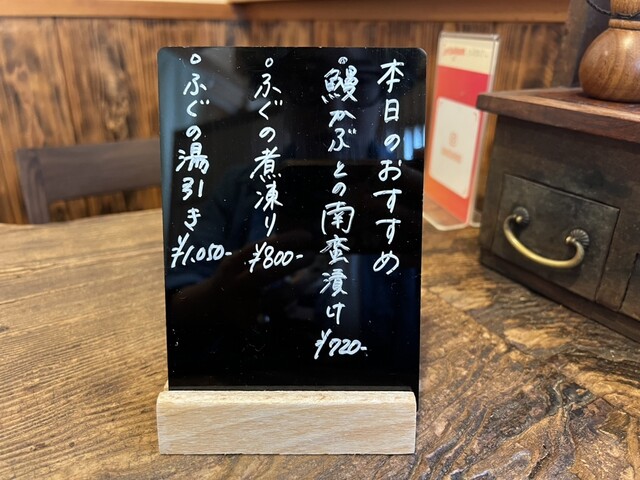 本日のおすすめ
○鰻かぶとの南蛮漬け
¥720-
○ふぐの煮凍り
¥800-
○ふぐの湯引き
¥1,050-